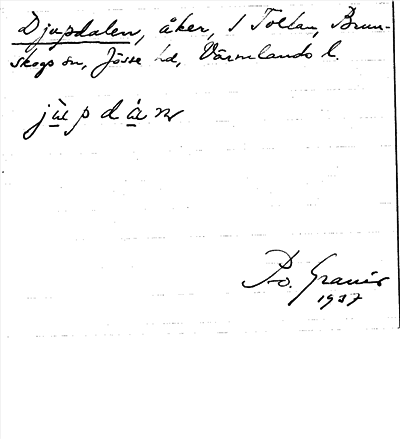 Djupdalen, åker, 1 Tollan, Brun-
skogs sn, Jösse hd, Värmlands l.
jùpdán
P-o. Granér
1937